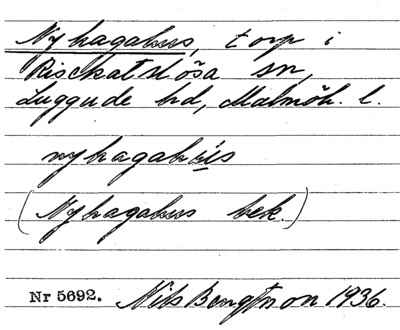 Nyhagahus, torp i
Risekatslösa sn,
Luggude hd, Malmöh. l.
nyhagahús
(Nyhagahus bek.)
Nr 5692. Nils Bengtson 1936.